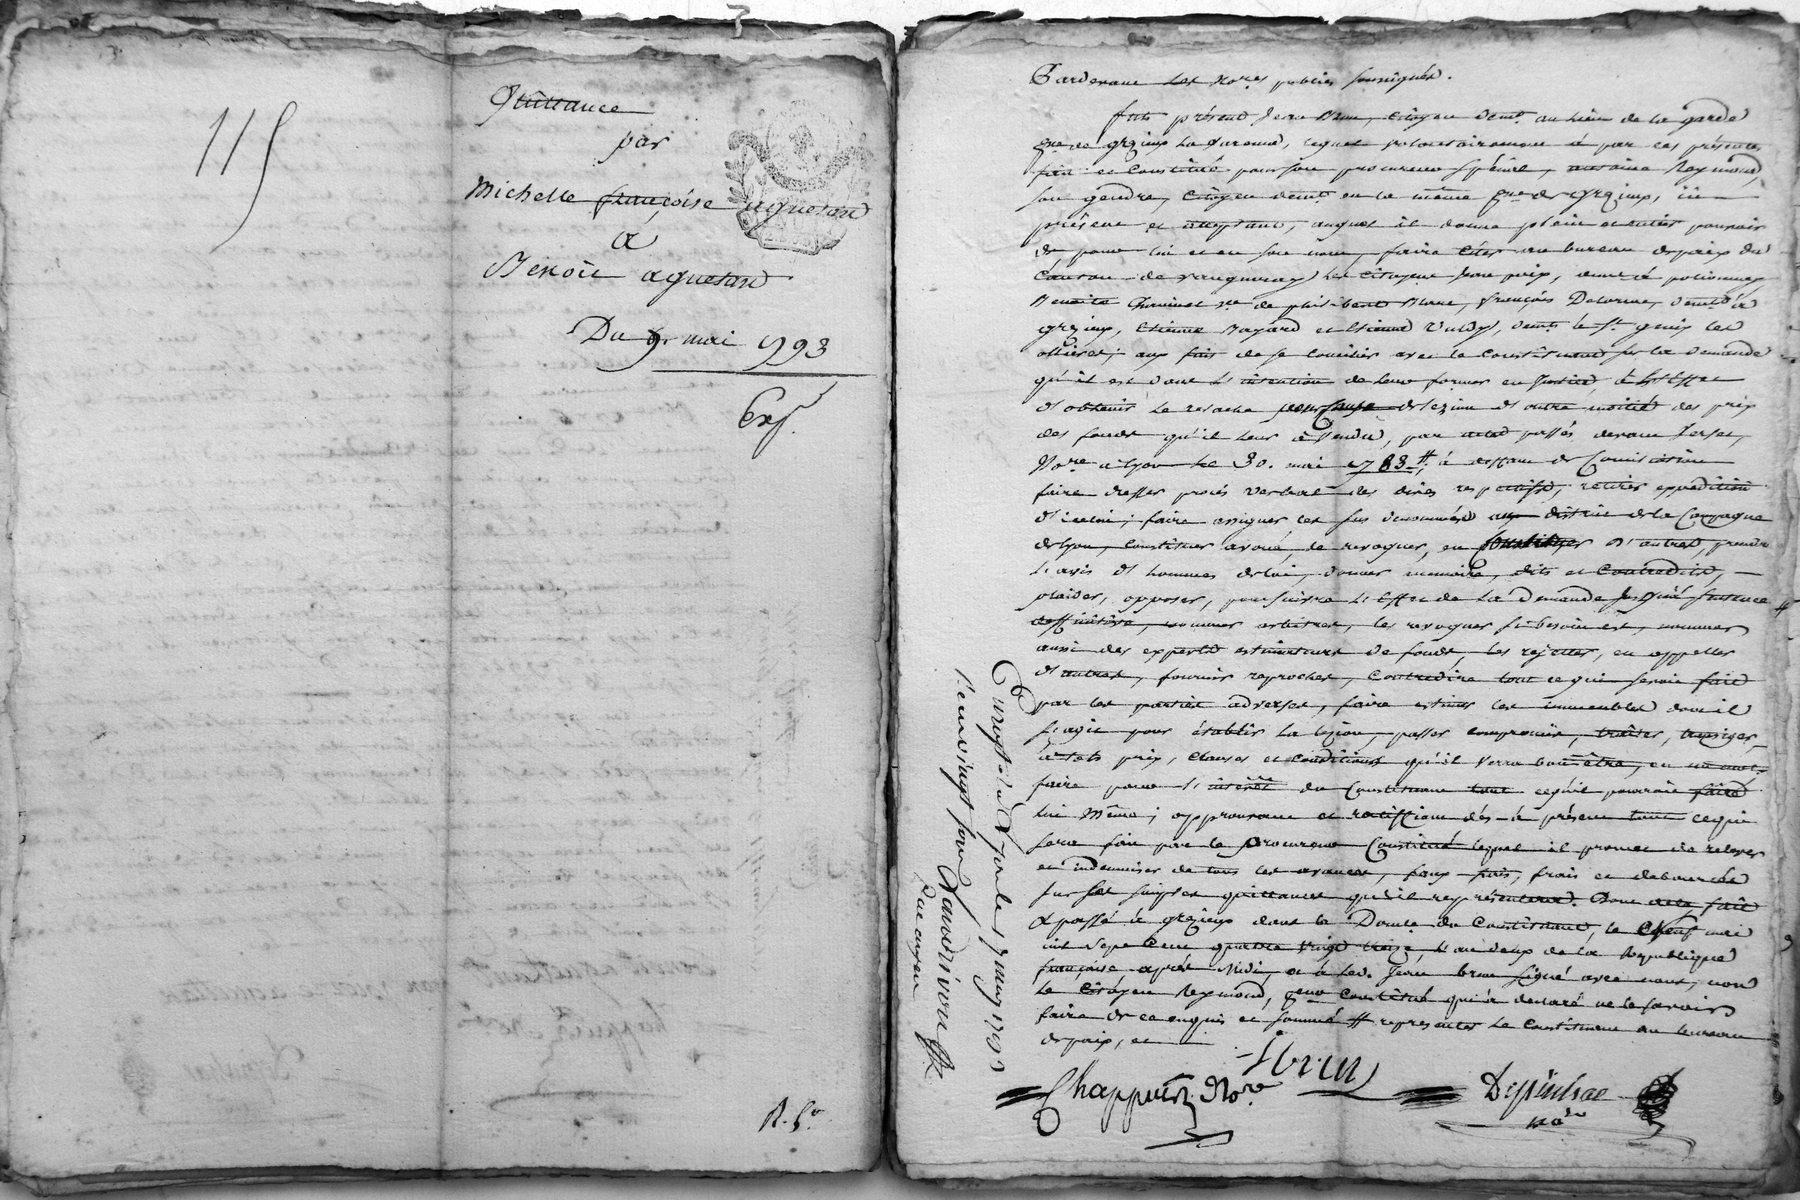 115
Quittance
par
Michelle françoise aguetand
a
Benoit aguetand
Du 9. mai 1793
Exp.
R. 5°.
Pardevant Les No.res publics soussignés.
fut présent Jean Brun, citoyen demt. au lieu de la garde
de grezieux La Varenne, lequel volontairement a par ces présentes
fait et constitué pour son procureur spécial, antoine Reymond,
son gendre, citoyen demt. en la même de grezieux, ici
présent et acceptant, auquel il donne plein et entier pouvoir
de, pour lui et en son nom, faire citer au bureau de paix du
Canton de Vaugneray les citoyens Jean demt. à pollionnay
Benoite ve. de philibert Blanc, françois Delorme, demt. à
grezieux, Etienne Bayard et Etienne demt. à St. genis les
ollieres; aux fins de se concilier avec le Constituant sur la Demande
qu'il est dans l'intention de leur former en Justice, à l'Effet
d'obtenir Le relache pour cause de lezion d'outre moitié des prix
des fonds qu'il leur à Vendu, par acte passés devant
No.re a lyon le 30. mai 1783 #, à deffaut de Conciliation
faire dresser procès verbal des dires respectifs, retirer expédition
d'icelui; faire assigner les sus dénommés au district de la Campagne
de lyon, constituer avoué, le revoquer, en constituer d'autres, prendre
l'avis d'hommes de loi, donner mémoire, dits et contredits,
plaider, opposer, poursuivre l'Effet de la Demande jusqu'à sentence
deffinitive, nommer arbitres, les revoquer si besoin est, nommer
aussi des experts estimateurs de fonds, les rejetter, en appeller
d'autres, fournir reproches, contredire tout ce qui seroit fait
par les parties adverses, faire estimer les immeubles dont il
s'agit pour établir la lezion, passer compromis, traiter, transiger,
à tels prix, clauses et conditions qu'il verra bon être, en un mot
faire pour l'intérêt du Constituant tout ce qu'il pourroit faire
lui même; approuvant et ratiffiant dès à présent tout ce qui
sera fait par le procureur Constitué lequel il promet de relever
et indemniser de tous les avances, faux frais, frais et deboursés
sur ses simples quittances qu'il représentera. Dont acte fait
& passé à grezieux dans le Domicile du Constituant, le neuf mai
mil sept Cent quatre vingt treize, l'an deux de la République
françoise après midi, & à led. Jean brun signé avec nous, non
Le citoyen Reymond, Constitué qui a declaré ne le savoir
faire de ce enquis et sommé # representer Le Constituant au bureau
de paix, et
Brun
Chappuis No.re
Depeulsae
no.re
Enregistré a Vaugneray le 17 may 1793
Reçu vingt sous Vaudrivon